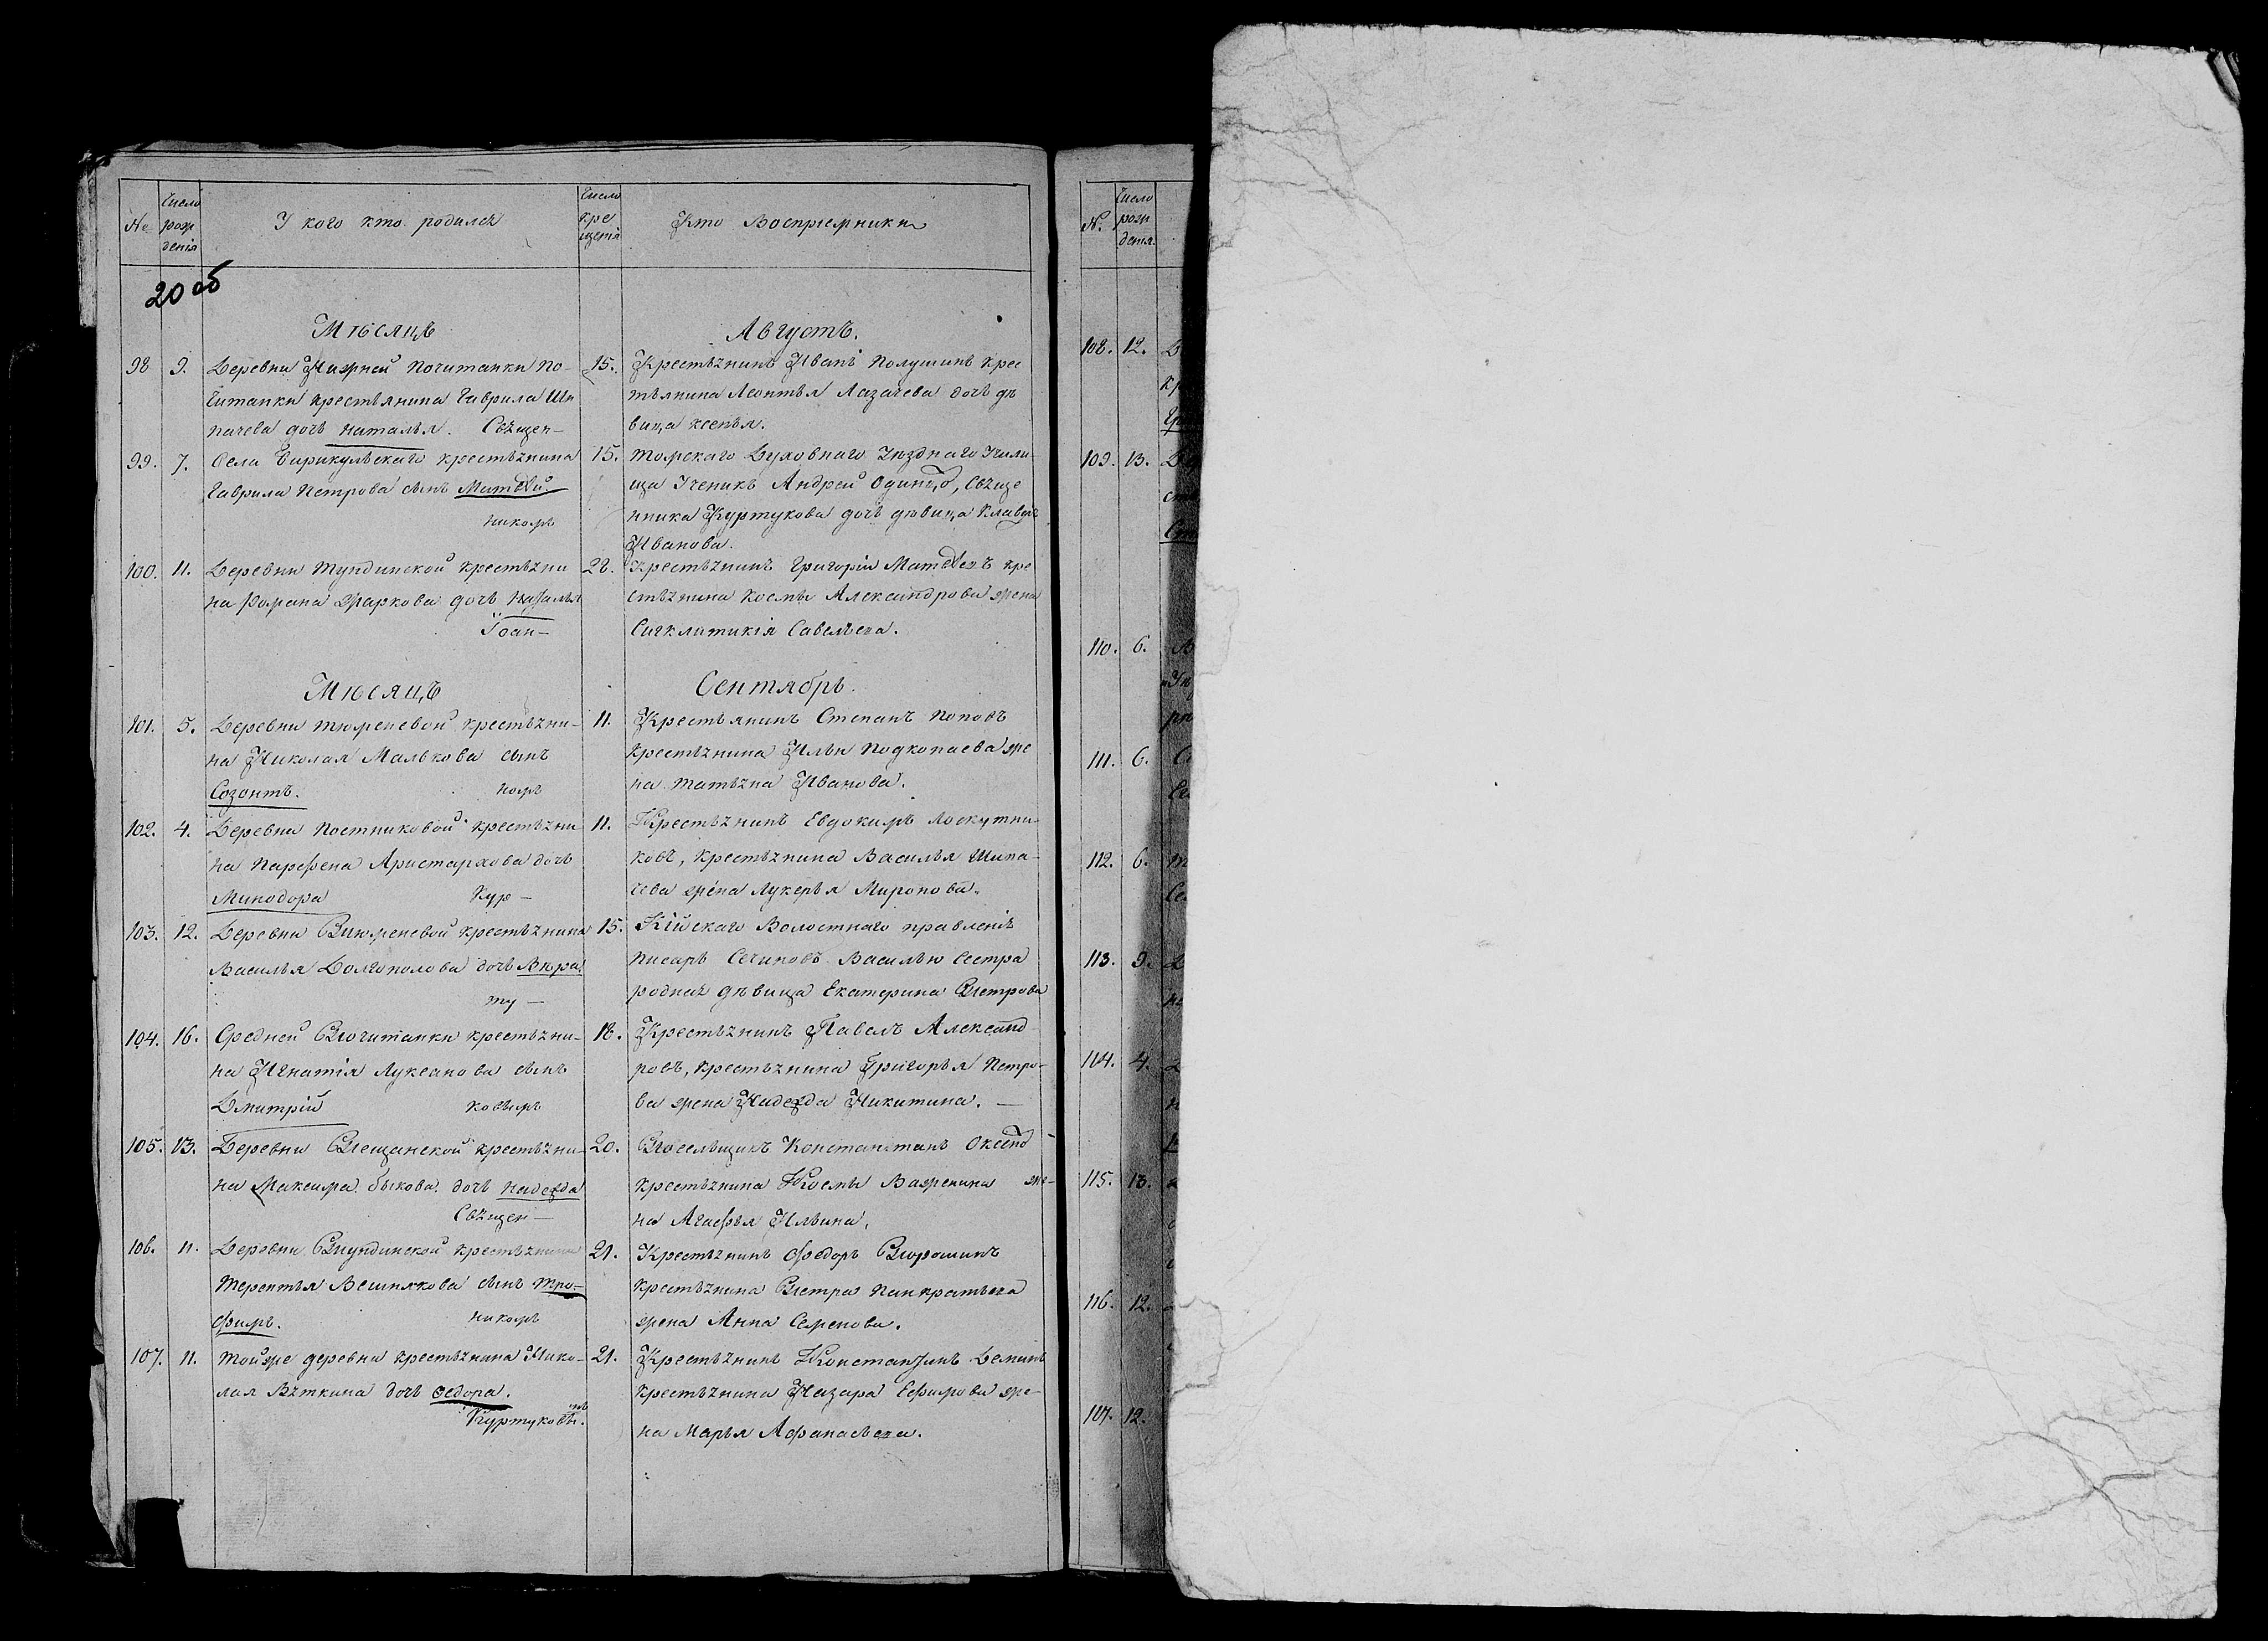 №
Число рождения
У кого кто родился
Число крещения
Кто Воспріемники
20 об
Мѣсяцъ Августъ.
98 9. Деревни Нижней Почитанки По-
читанки крестьянина Гаврила Ши
пачева дочь Наталья. Священ—
15. Крестьянинъ Иванъ Полушинъ крес
тьянина Леонтья Лазачева дочь дѣ
вица Ксенья.
99. 7. Села Тарикульскаго крестьянина
Гаврила Петрова сынъ Матвѣй
никомъ
15. Томскаго Духовнаго Уезднаго Учили
ща Ученикъ Андрей Одинцо, Свяще
нника Куртукова дочь дѣвица Клавдія
Иванова.
100. 11. Деревни Тундинской крестьяни
на Романа Жаркова дочь Наталья
Іоан—
28. Крестьянинъ Григорій Матвеевъ кре
стьянина Космы Александрова жена
Сигклитикія Савельева.
Мѣсяцъ Сентябрь.
101. 5. Деревни Тюменевой крестьяни-
на Николая Малькова сынъ
Созонтъ. номъ
11. Крестьянинъ Степанъ Поповъ
крестьянина Ильи Подкопаева же
на Татьяна Иванова.
102. 4. Деревни Постниковой крестьяни
на Парфена Аристархова дочь
Минодора Кур—
11. Крестьянинъ Евдокимъ Лоскутни-
ковъ, крестьянина Василья Шипа-
чева жена Лукерья Миронова.
103. 12. Деревни Тюменевой крестьянина
Василья Долгополова дочь Вѣра.
ту—
15. Кійскаго Волостнаго правленія
писарь Сечиновъ Василью Сестра
родная дѣвица Екатерина Петрова
104. 16. Средней Почитанки крестьяни-
на Игнатія Лукеанова сынъ
Дмитрій ковымъ
18. Крестьянинъ Павелъ Александ
ровъ, крестьянина Григорья Петро-
ва жена Надежда Никитина.—
105. 13. Деревни Пещанской крестьяни-
на Максима Быкова дочь Надежда
Священ—
20. Поселыщикъ Константинъ
крестьянина Космы Важенина же-
на Агафья Ильина,
106. 11. Деревни Тундинской крестьянина
Терентья Вешнякова сынъ Тро-
фимъ. никомъ
21. Крестьянинъ Федоръ Ворошинъ
крестьянина Петра Панкратьева
жена Анна Семенова.
107. 11. Тойже деревни крестьянина Нико-
лая Вяткина дочь Федора.
Куртуковымъ.
21. Крестьянинъ Константинъ Деминъ
крестьянина Назара Ефимова же-
на Марья Афанасьева.
№.
Число рождения.
108. 12.
109. 13.
110. 6.
111. 6.
112. 6.
113. 9.
114. 4.
115. 13.
116. 12.
117. 12.